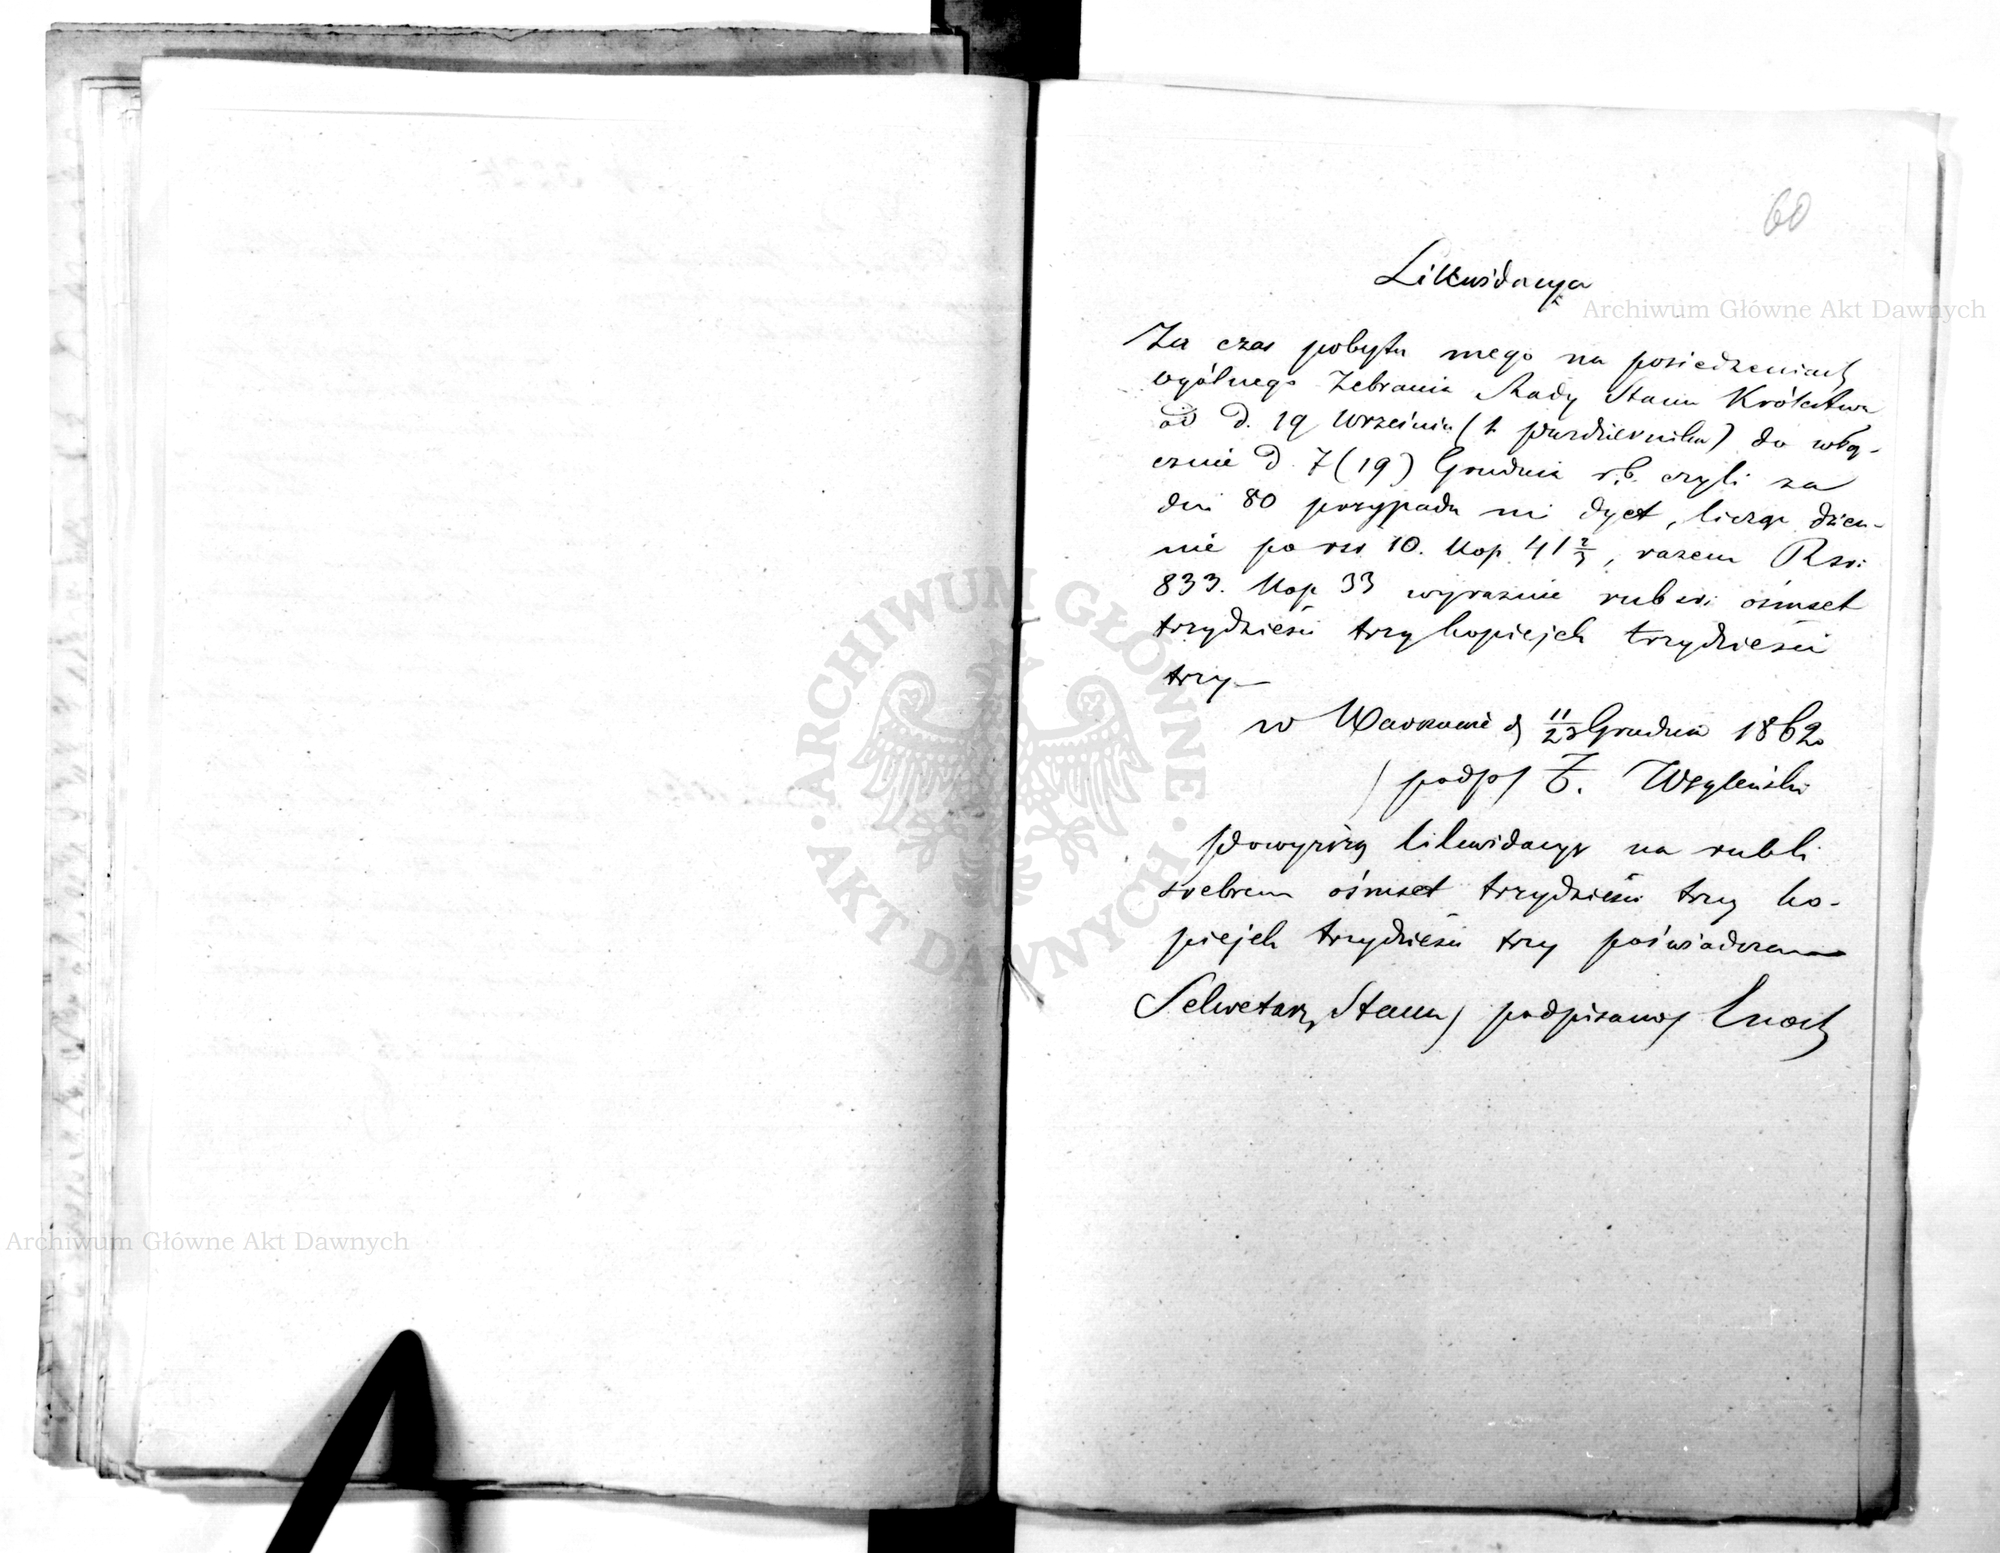 60
Likwidacya
Za czas pobytu mego na posiedzeniach
ogólnego Zebrania Rady Stanu Królestwa
od d. 19 Września (1 Października) do włą-
cznie d. 7 (19) Grudnia r. b. czyli za
dni 80 przypada mi dyet, licząc dzien-
nie po rsr. 10. Kop. 41 2/3, razem Rsr:
833. Kop 33 wyraźnie rub sr: ośmset
trzydzieści trzy kopiejek trzydzieści
trzy—
w Warszawie d 11/23 Grudnia 1862
/podp/ F. Węgleński
Powyższą likwidacyę na rubli
srebrem ośmset trzydzieści trzy ko-
piejek trzydzieści trzy poświadczam
Sekretarz Stanu /podpisano/ Enoch
Archiwum Główne Akt Dawnych
ARCHIWUM GŁÓWNE · AKT DAWNYCH ·
Archiwum Główne Akt Dawnych